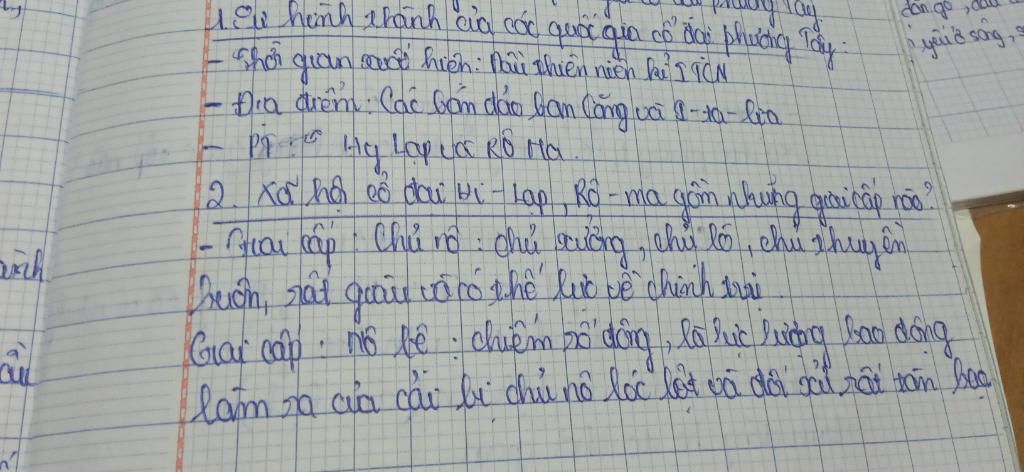 phương Tây
1. Sự hình thành của các quốc gia cổ đại phương Tây:
- Thời gian xuất hiện: Đầu thiên niên kỉ I TCN
- Địa điểm: Các bán đảo Ban Căng và I-ta-lia
- Hy Lạp và Rô Ma.
2. Xã hội cổ đại Hi-Lạp, Rô-ma gồm những giai cấp nào?
- Giai cấp: Chủ nô: chủ xưởng, chủ lò, chủ thuyền
buôn, rất giàu và có thế lực về chính trị
Giai cấp: nô lệ: chiếm số đông, là lực lượng lao động
làm ra của cải bị chủ nô bóc lột và đối xử rất tàn bạo